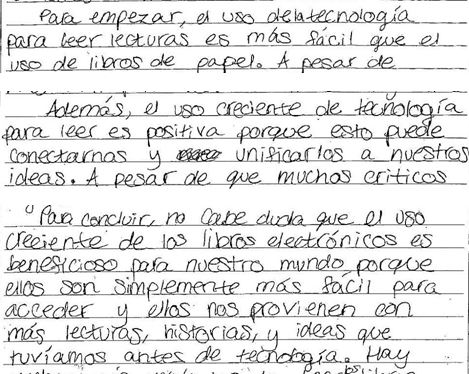 Para empezar, el uso de la tecnología
para leer lecturas es más fácil que el
uso de libros de papel. A pesar de
Además, el uso creciente de tecnología
para leer es positiva porque esto puede
conectarnos y unificarlos a nuestros
ideas. A pesar de que muchos criticos
"Para concluir, no cabe duda que el uso
creciente de los libros electrónicos es
beneficioso para nuestro mundo porque
ellos son simplemente más fácil para
acceder y ellos nos provienen con
más lecturas, historias, y ideas que
tuvíamos antes de tecnología. Hay